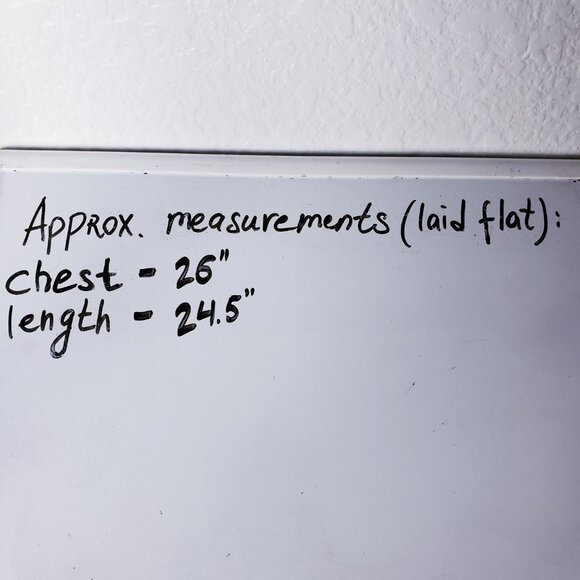 Approx. measurements (laid flat):
chest - 26"
length - 24.5"